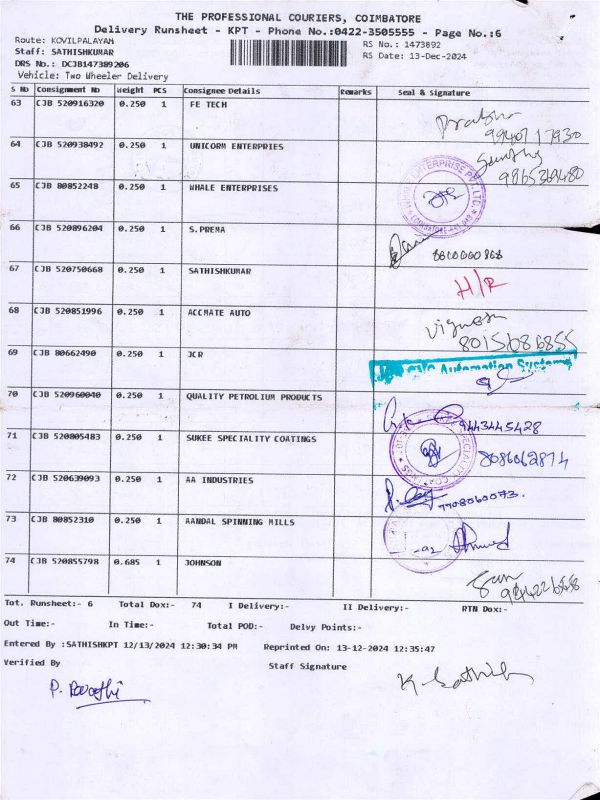 THE PROFESSIONAL COURIERS, COIMBATORE
Delivery Runsheet - KPT - Phone No.:0422-3505555 - Page No.:6
Route: KOVILPALAYAM
RS No.: 1473892
Staff: SATHISHKUMAR
RS Date: 13-Dec-2024
DRS No.: DCJB147389206
Vehicle: Two Wheeler Delivery
S No Consignment No Weight PCS Consignee Details Remarks Seal & Signature
63 CJB 520916320 0.250 1 FE TECH
Prabhu
9940717930
64 CJB 520938492 0.250 1 UNICORM ENTERPRIES
9865369480
65 CJB 80852248 0.250 1 WHALE ENTERPRISES
66 CJB 520896204 0.250 1 S.PREMA
67 CJB 520750668 0.250 1 SATHISHKUMAR
H/R
68 CJB 520851996 0.250 1 ACCMATE AUTO
Vignesh
8015086855
69 CJB 80662490 0.250 1 JCR
Automation Systems
70 CJB 520960040 0.250 1 QUALITY PETROLIUM PRODUCTS
9443445428
71 CJB 520805483 0.250 1 SUKEE SPECIALITY COATINGS
8086062874
72 CJB 520639093 0.250 1 AA INDUSTRIES
7708060073.
73 CJB 80852310 0.250 1 AANDAL SPINNING MILLS
74 CJB 520855798 0.685 1 JOHNSON
Tot. Runsheet:- 6 Total Dox:- 74 I Delivery:- II Delivery:- RTN Dox:-
Out Time:- In Time:- Total POD:- Delvy Points:-
Entered By :SATHISHKPT 12/13/2024 12:30:34 PM Reprinted On: 13-12-2024 12:35:47
Verified By Staff Signature
K. Sathish